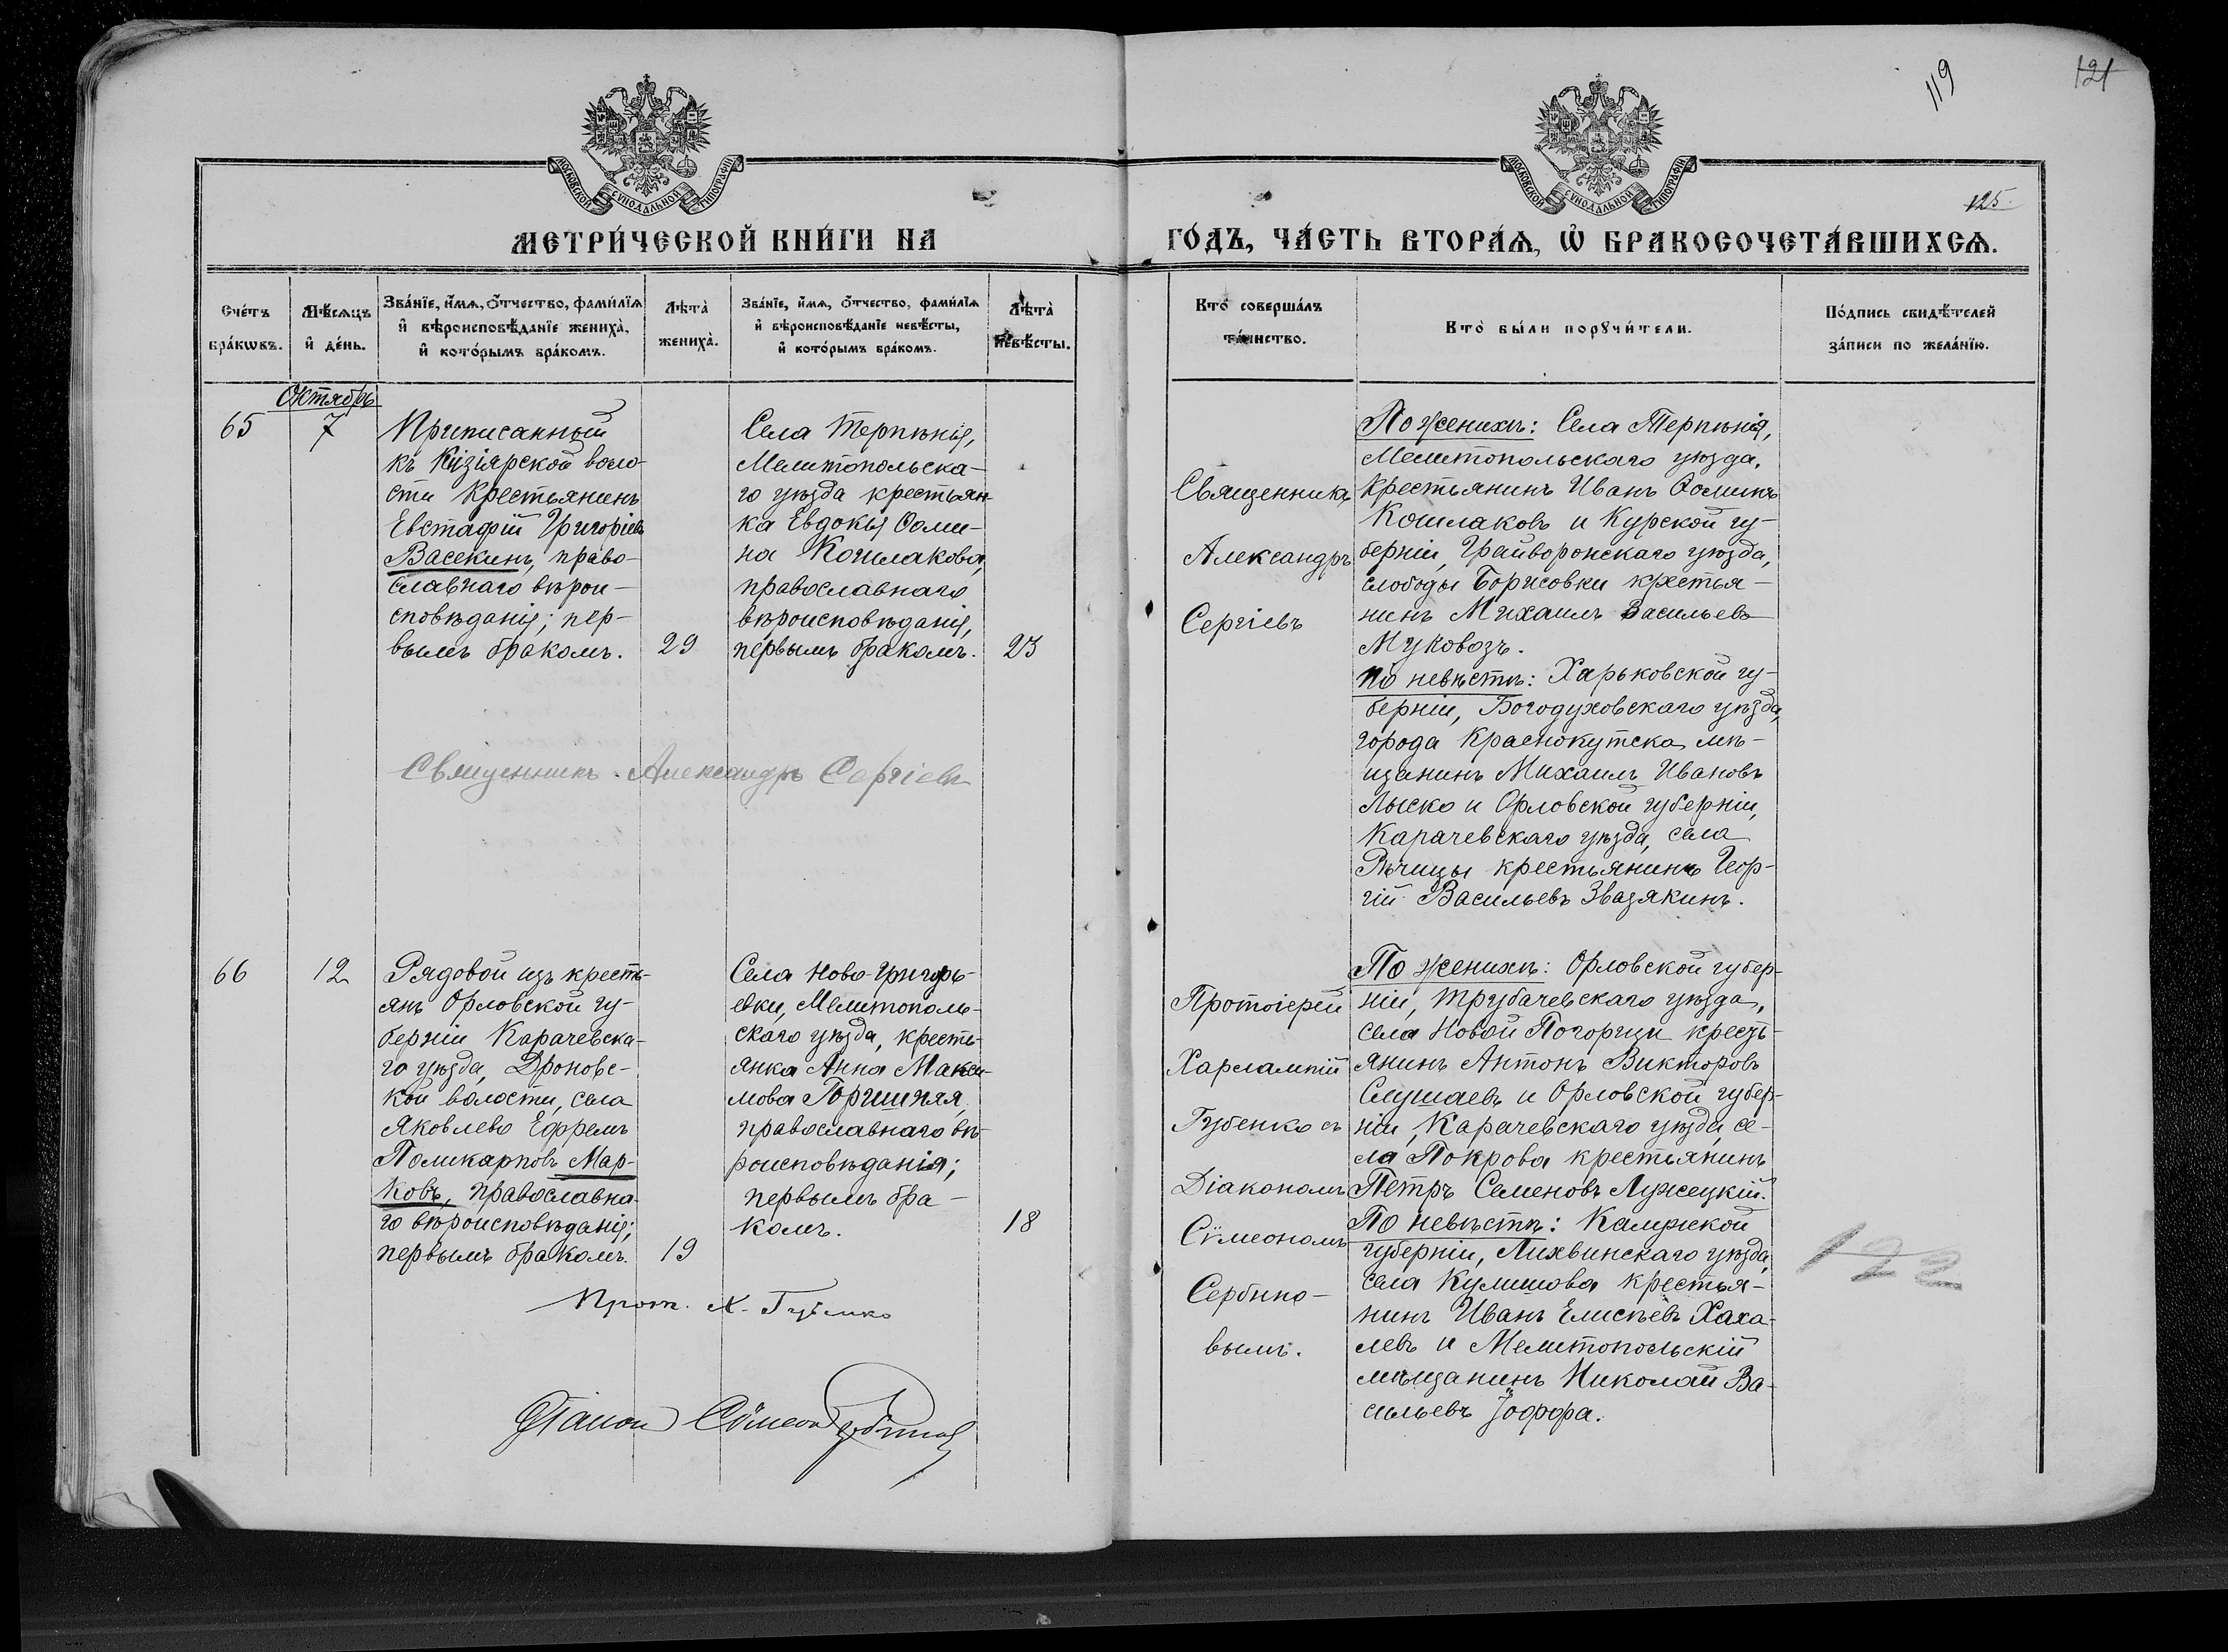 119
121
МОСКОВСКОЙ СѴНОДАЛЬНОЙ ТИПОГРАФІИ
МОСКОВСКОЙ СѴНОДАЛЬНОЙ ТИПОГРАФІИ
125
МЕТРИ́ЧЕСКОЙ КНИ́ГИ НА
ГО́ДЪ, ЧА́СТЬ ВТОРА́Ѧ, Ѡ҆ БРАКОСОЧЕТА́ВШИХСѦ.
Сче́тъ
бра́кѡвъ.
Мѣ́сѧцъ
и҆ де́нь.
Зва́нїе, и҆́мѧ, ѻ҆́тчество, фами́лїѧ
и҆ вѣроисповѣ́данїе жениха̀,
и҆ кото́рымъ бра́комъ.
Лѣта̀
жениха̀.
Зва́нїе, и҆́мѧ, ѻ҆́тчество, фами́лїѧ
и҆ вѣроисповѣ́данїе невѣ́сты,
и҆ кото́рымъ бра́комъ.
Лѣта̀
невѣ́сты.
Кто̀ соверша́лъ
та́инство.
Кто̀ бы́ли порꙋчи́тели.
По́дпись свидѣ́телей
за́писи по жела́нїю.
Октябрь
65
7
Приписанный
къ Кизіярской воло-
сти крестьянинъ
Евстафій Григоріевъ
Васекинъ, право-
славнаго вѣрои-
сповѣданія; пер-
вымъ бракомъ.
29
Села Терпѣнія,
Мелитопольска-
го уѣзда крестьян-
ка Евдокія Ѳоми-
на Кошлакова,
православнаго
вѣроисповѣданія,
первымъ бракомъ.
23
Священникъ
Александръ
Сергіевъ
По женихѣ: Села Терпѣнія,
Мелитопольскаго уѣзда,
крестьянинъ Иванъ Ѳоминъ
Кошлаковъ и Курской гу-
берніи, Грайворонскаго уѣзда,
слободы Борисовки крестья-
нинъ Михаилъ Васильевъ
Муковозъ.
по невѣстѣ: Харьковской гу-
берніи, Богодуховскаго уѣзда,
города Краснокутска мѣ-
щанинъ Михаилъ Ивановъ
Лыско и Орловской губерніи,
Карачевскаго уѣзда, села
Рѣчицы крестьянинъ Геор-
гій Васильевъ Звазякинъ.
Священникъ Александръ Сергіевъ
66
12
Рядовой изъ кресть-
янъ Орловской гу-
берніи Карачевска-
го уѣзда, Дроновс-
кой волости, села
Яковлево Ефремъ
Поликарповъ Мар-
ковъ, православна-
го вѣроисповѣданія;
первымъ бракомъ.
19
Села Ново-Григорь-
евки, Мелитополь-
скаго уѣзда, кресть-
янка Анна Макси-
мова Горшняя,
православнаго вѣ-
роисповѣданія;
первымъ бра-
комъ.
18
Протоіерей
Харлампій
Губенко съ
Діакономъ
Сѵмеономъ
Сербино-
вымъ.
По женихѣ: Орловской губер-
ніи, Трубачевскаго уѣзда,
села Новой Погорщи кресть-
янинъ Антонъ Викторовъ
Слушаевъ и Орловской губер-
ніи, Карачевскаго уѣзда, се-
ла Покрова крестьянинъ
Петръ Семеновъ Лужецкій.
По невѣстѣ: Калужской
губерніи, Лихвинскаго уѣзда,
села Кулишова крестья-
нинъ Иванъ Елисѣевъ Хаха-
левъ и Мелитопольскій
мѣщанинъ Николай Ва-
сильевъ Іоффа.
122
Прот. Х. Губенко
Діаконъ Сѵмеонъ